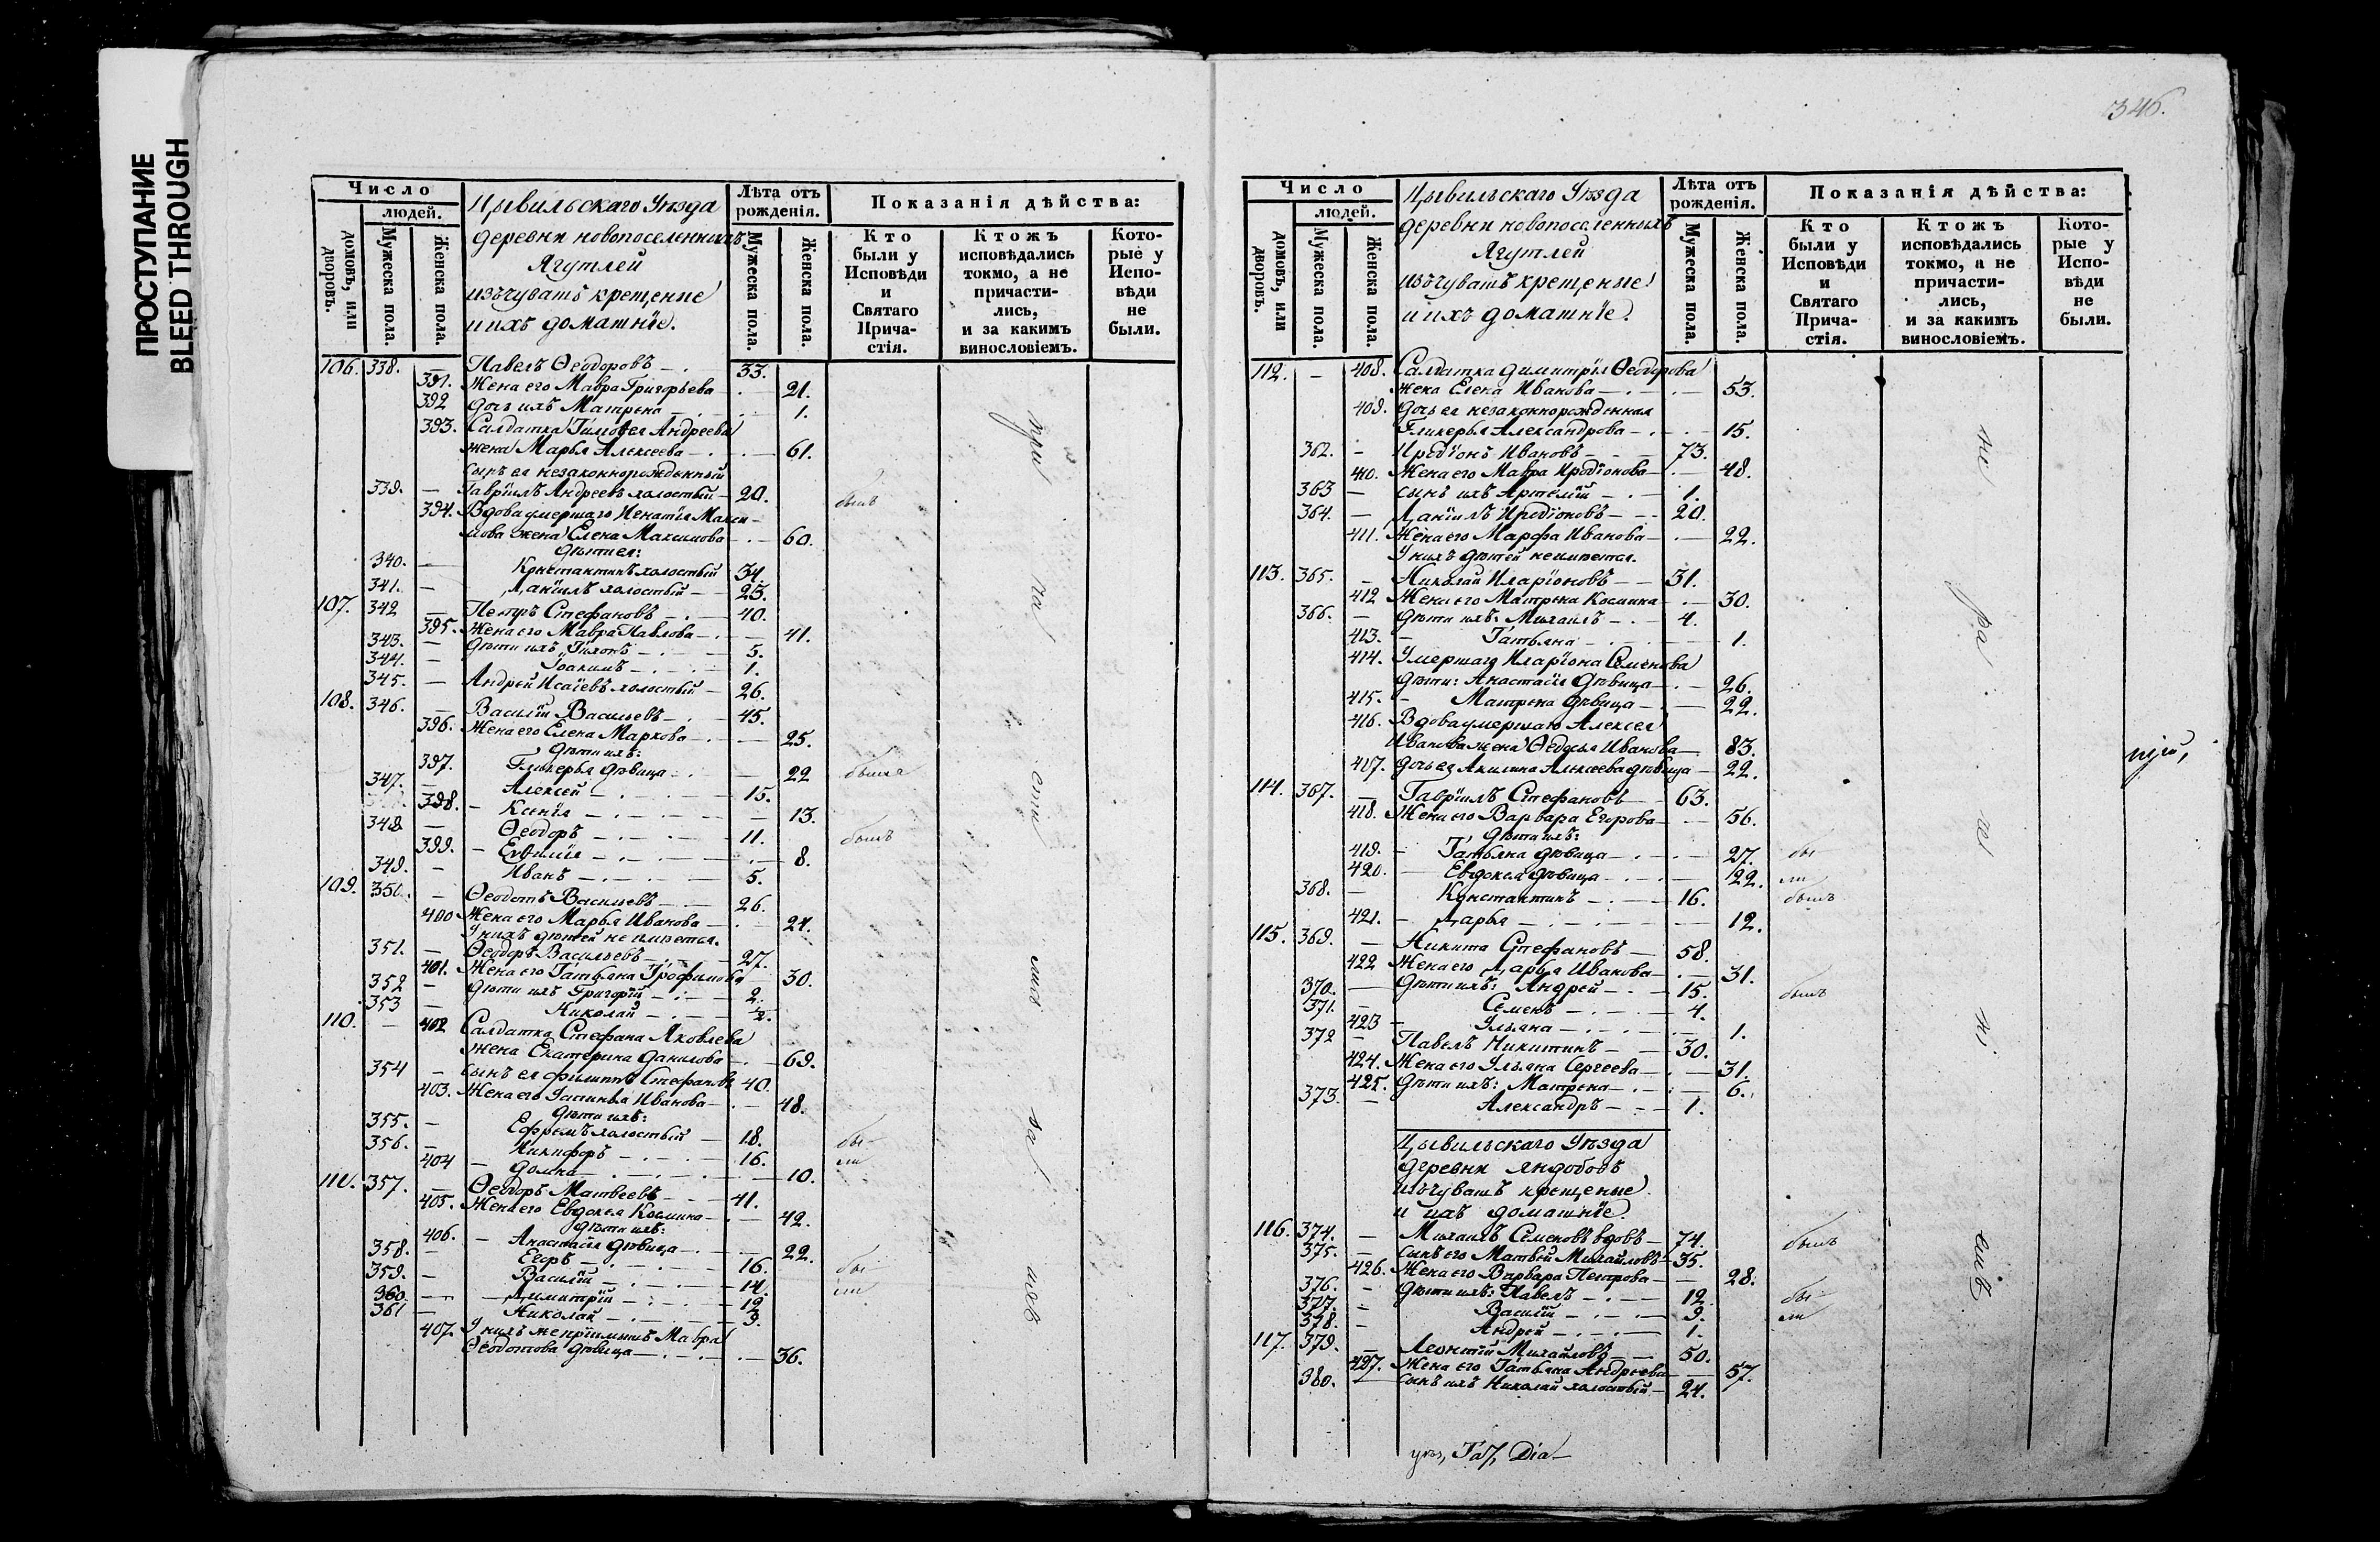 ПРОСТУПАНИЕ
BLEED THROUGH
Число
людей.
домовъ, или дворовъ.
Мужеска пола.
Женска пола.
Цывильскаго Уѣзда
деревни новопоселенныхъ
Ягутлей
изъ чувашъ крещеные
и ихъ домашніе.
Лѣта отъ рожденія.
Мужеска пола.
Женска пола.
Показанія дѣйства:
Кто были у Исповѣди и Святаго Прича-стія.
Ктожъ исповѣдались токмо, а не причасти-лись, и за какимъ винословіемъ.
Кото-рые у Испо-вѣди не были.
106. 338. — Павелъ Ѳеодоровъ — 33.
391. Жена его Мавра Григорьева — 21.
392 дочь ихъ Матрена — 1.
393. Салдатка Тимоѳея Андреева
жена Марья Алексеева — 61.
сынъ ея незаконнорожденный
339. — Гавріилъ Андреевъ холостый — 20. былъ
394. Вдова умершаго Игнатія Макси-
мова жена Елена Максимова — 60.
дѣти ея:
340. — Константинъ холостый 34.
341. — Даніилъ холостый — 25.
107. 342 — Петръ Стефановъ — 40.
395. Жена его Мавра Павлова — 41.
343. — дѣти ихъ Тихонъ — 5.
344. — Іоакимъ — 1.
345. — Андрей Исаіевъ холостый — 26.
108. 346. — Василій Васильевъ — 45.
396. Жена его Елена Маркова — 25.
дѣти ихъ:
397. Гликерья дѣвица — 22 была
347. — Алексей — 15.
398. — Ксенія — 13.
348 — Ѳеодоръ — 11. былъ
399. — Евѳимія — 8.
349. — Иванъ — 5.
109. 350. — Ѳеодотъ Васильевъ — 26.
400 Жена его Марья Иванова — 24.
У нихъ дѣтей не имѣется.
351. — Ѳеодоръ Васильевъ — 27.
401. Жена его Татьяна Трофимова 30.
352 — дѣти ихъ Григорій — 2.
353 — Николай — ½.
110. — 402 Салдатка Стефана Яковлева
жена Екатерина Данилова — 69.
354 — сынъ ея Филиппъ Стефановъ 40.
403. Жена его Устинья Иванова — 48.
дѣти ихъ:
355. — Ефремъ холостый — 18. бы-
356. — Никифоръ — 16. ли
404 — Домна — 10.
111. 357. — Ѳеодоръ Матвеевъ — 41.
405. Жена его Евдокея Космина — 42.
дѣти ихъ:
406. — Анастасія дѣвица — 22.
358. — Егоръ — 16. бы-
359. — Василій — 14. ли
360. — Димитрій — 12
361 — Николай — 3.
407. У нихъ же пріимышъ Мавра
Ѳеодотова дѣвица — 36.
346.
Число
людей.
домовъ, или дворовъ.
Мужеска пола.
Женска пола.
Цывильскаго Уѣзда
деревни новопоселенныхъ
Ягутлей
изъ чувашъ крещеные
и ихъ домашніе.
Лѣта отъ рожденія.
Мужеска пола.
Женска пола.
Показанія дѣйства:
Кто были у Исповѣди и Святаго Прича-стія.
Ктожъ исповѣдались токмо, а не причасти-лись, и за какимъ винословіемъ.
Кото-рые у Испо-вѣди не были.
112. — 408. Салдатка Димитрія Ѳеодорова
жена Елена Иванова — 53.
409. дочь ея незаконнорожденная
Гликерья Александрова — 15.
362. — Иродіонъ Ивановъ — 73.
410. Жена его Мавра Иродіонова — 48.
363 — сынъ ихъ Артемій — 1.
364. — Даніилъ Иродіоновъ — 20.
411. Жена его Марфа Иванова — 22.
У нихъ дѣтей не имѣется.
113. 365. — Николай Иларіоновъ — 31.
412 Жена его Матрена Космина — 30.
366. — дѣти ихъ: Михаилъ — 4.
413. — Татьяна — 1.
414. Умершаго Иларіона Семенова
дѣти: Анастасія дѣвица — 26.
415. — Матрена дѣвица — 22.
416. Вдова умершаго Алексея
Иванова жена Ѳедосья Иванова — 83.
417. дочь ея Акилина Алексеева дѣвица — 22.
114. 367. — Гавріилъ Стефановъ — 63.
418. Жена его Варвара Егорова — 56.
дѣти ихъ:
419. — Татьяна дѣвица — 27. бы-
420. — Евдокея дѣвица — 22. ли
368. — Константинъ — 16. былъ
421. — Дарья — 12.
115. 369. — Никита Стефановъ — 58.
422 Жена его Дарья Иванова — 31.
370. — дѣти ихъ: Андрей — 15. былъ
371. — Семенъ — 4.
423 — Ульяна — 1.
372 — Павелъ Никитинъ — 30.
424. Жена его Ульяна Сергеева — 31.
425. дѣти ихъ: Матрена — 6.
373. — Александръ — 1.
Цывильскаго Уѣзда
деревни Яндобовъ
изъ чувашъ крещеные
и ихъ домашніе.
116. 374. — Михаилъ Семеновъ вдовъ — 74. былъ
375. — сынъ его Матвей Михайловъ — 35.
426. Жена его Варвара Петрова — 28.
376. — дѣти ихъ: Павелъ — 12. бы-
377. — Василій — 9. ли
378. — Андрей — 1.
117. 379. — Леонтій Михайловъ — 50.
427. Жена его Татьяна Андреева 57.
380. — сынъ ихъ Николай холостый — 24.